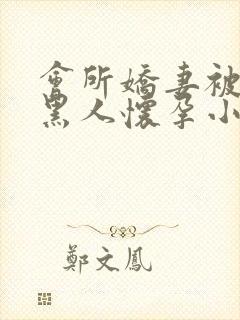 會所嬌妻被
黑人懷孕小
鄭文鳳